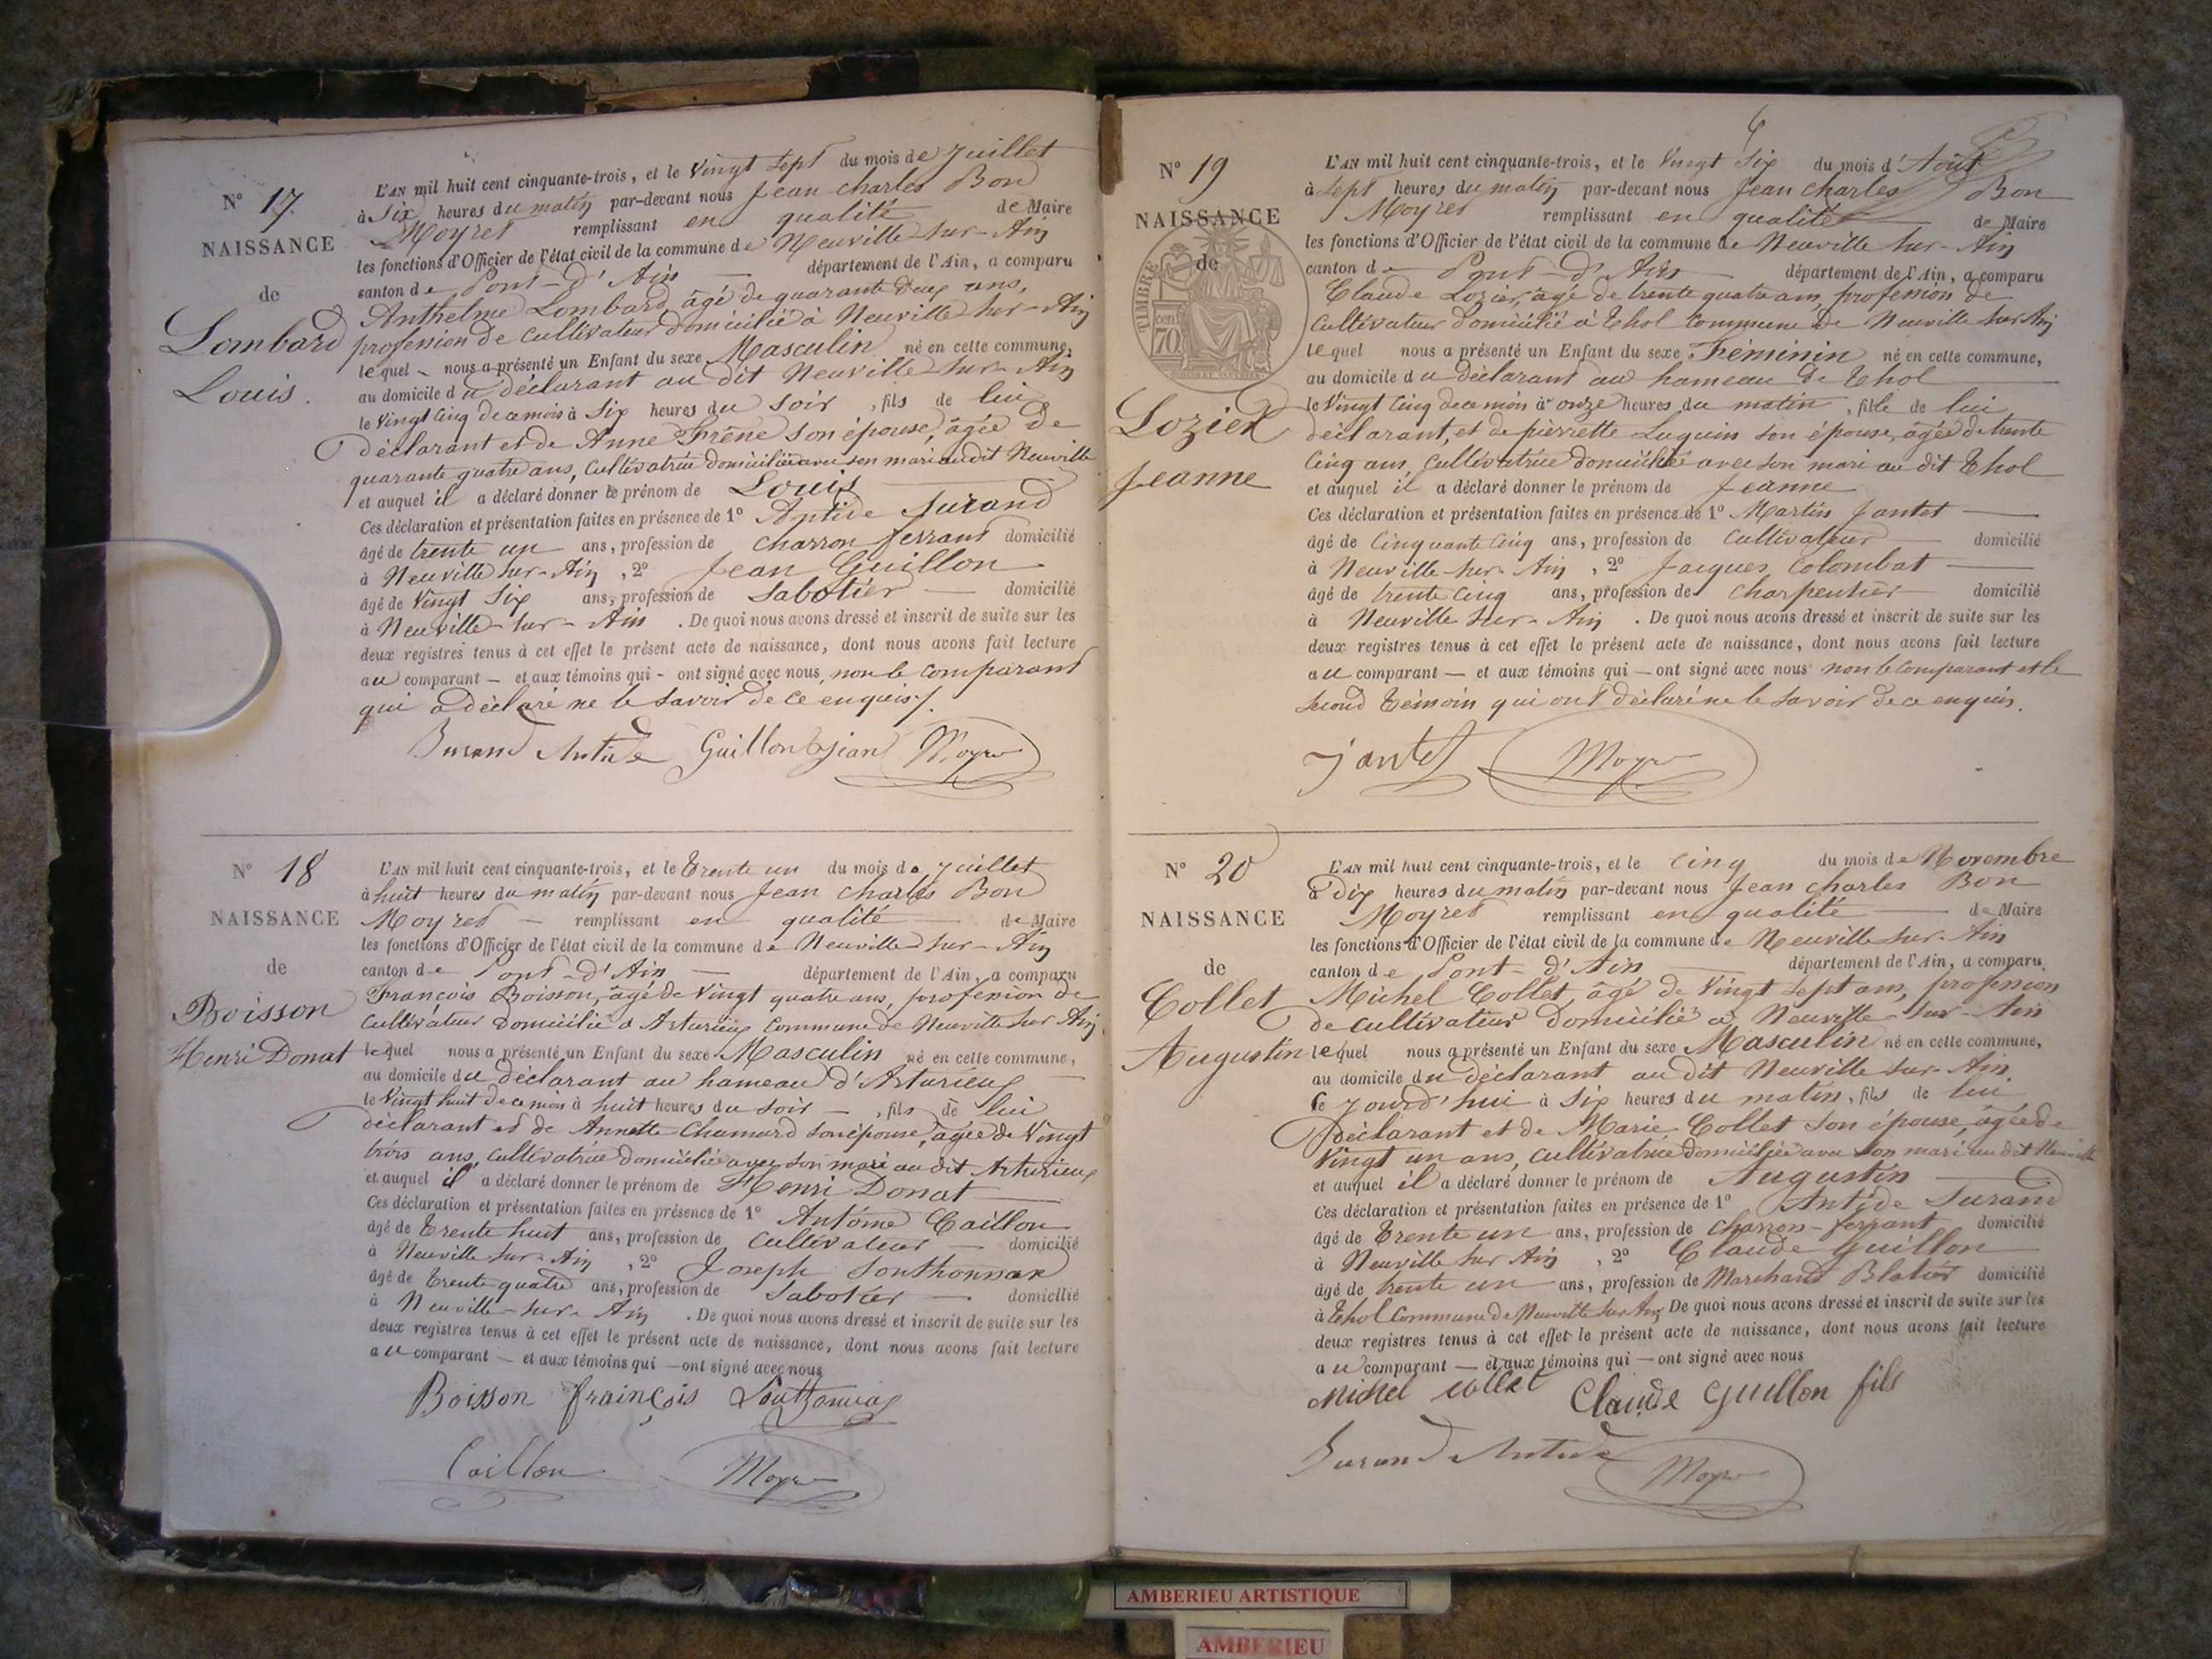 N° 17.
NAISSANCE
de
Lombard
Louis.
L'AN mil huit cent cinquante-trois, et le Vingt Sept du mois de Juillet
à Six heures du matin par-devant nous Jean Charles Bon
Moyret remplissant en qualité de Maire
les fonctions d'Officier de l'état civil de la commune de Neuville-sur-Ain
canton de Pont-d'Ain département de l'Ain, a comparu
Anthelme Lombard, âgé de quarante deux ans,
profession de Cultivateur domicilié à Neuville sur-Ain
lequel nous a présenté un Enfant du sexe Masculin né en cette commune,
au domicile du déclarant au dit Neuville sur-Ain
le Vingt Cinq de ce mois à Six heures du soir, fils de lui
déclarant et de Anne Frêne son épouse, âgée de
quarante quatre ans, Cultivatrice domiciliée avec son mari au dit Neuville
et auquel il a déclaré donner le prénom de Louis
Ces déclaration et présentation faites en présence de 1° Antide Surand
âgé de trente un ans, profession de Charron ferrant domicilié
à Neuville sur-Ain, 2° Jean Guillon
âgé de Vingt Six ans, profession de Sabotier domicilié
à Neuville-sur-Ain. De quoi nous avons dressé et inscrit de suite sur les
deux registres tenus à cet effet le présent acte de naissance, dont nous avons fait lecture
au comparant — et aux témoins qui - ont signé avec nous, non le comparant
qui a déclaré ne le savoir de ce enquis.
Surand Antide Guillon Jean Moyret
N° 18
NAISSANCE
de
Boisson
Henri Donat
L'AN mil huit cent cinquante-trois, et le Trente un du mois de Juillet
à huit heures du matin par-devant nous Jean Charles Bon
Moyret — remplissant en qualité de Maire
les fonctions d'Officier de l'état civil de la commune de Neuville sur-Ain
canton de Pont-d'Ain — département de l'Ain, a comparu
François Boisson, âgé de Vingt quatre ans, profession de
Cultivateur domicilié à Arturieux Commune de Neuville sur Ain,
lequel nous a présenté un Enfant du sexe Masculin né en cette commune,
au domicile du déclarant au hameau d'Arturieux
le Vingt huit de ce mois à huit heures du soir —, fils de lui
déclarant et de Annette Chamard son épouse, âgée de Vingt
trois ans, Cultivatrice domiciliée avec son mari au dit Arturieux
et auquel il a déclaré donner le prénom de Henri Donat
Ces déclaration et présentation faites en présence de 1° Antoine Caillon
âgé de Trente huit ans, profession de Cultivateur domicilié
à Neuville sur-Ain, 2° Joseph Southonnax
âgé de Trente quatre ans, profession de Sabotier domicilié
à Neuville-sur-Ain. De quoi nous avons dressé et inscrit de suite sur les
deux registres tenus à cet effet le présent acte de naissance, dont nous avons fait lecture
au comparant — et aux témoins qui — ont signé avec nous
Boisson françois Southonnax
Caillon Moyret
N° 19
NAISSANCE
de
TIMBRE
70
Lozier
Jeanne
L'AN mil huit cent cinquante-trois, et le Vingt Six du mois d'Août
à Sept heures du matin par-devant nous Jean Charles Bon
Moyret remplissant en qualité de Maire
les fonctions d'Officier de l'état civil de la commune de Neuville sur-Ain
canton de Pont-d'Ain département de l'Ain, a comparu
Claude Lozier, âgé de trente quatre ans, profession de
Cultivateur domicilié à Thol Commune de Neuville sur Ain
lequel nous a présenté un Enfant du sexe Féminin né en cette commune,
au domicile du déclarant au hameau de Thol
le Vingt Cinq de ce mois à onze heures du matin, fille de lui
déclarant, et de pierrette Luquin son épouse, âgée de trente
Cinq ans, Cultivatrice domiciliée avec son mari au dit Thol
et auquel il a déclaré donner le prénom de Jeanne
Ces déclaration et présentation faites en présence de 1° Martin Jantet
âgé de Cinquante Cinq ans, profession de Cultivateur domicilié
à Neuville-sur-Ain, 2° Jacques Colombat
âgé de trente Cinq ans, profession de Charpentier domicilié
à Neuville sur-Ain. De quoi nous avons dressé et inscrit de suite sur les
deux registres tenus à cet effet le présent acte de naissance, dont nous avons fait lecture
au comparant — et aux témoins qui — ont signé avec nous non le comparant et le
second Témoin qui ont déclaré ne le savoir de ce enquis.
jantet Moyret
N° 20
NAISSANCE
de
Collet
Augustin
L'AN mil huit cent cinquante-trois, et le Cinq du mois de Novembre
à Dix heures du matin par-devant nous Jean Charles Bon
Moyret remplissant en qualité de Maire
les fonctions d'Officier de l'état civil de la commune de Neuville sur-Ain
canton de Pont-d'Ain département de l'Ain, a comparu
Michel Collet, âgé de Vingt Sept ans, profession
de cultivateur domicilié à Neuville-sur-Ain
lequel nous a présenté un Enfant du sexe Masculin né en cette commune,
au domicile du déclarant au dit Neuville sur-Ain
le Jourd'hui à Six heures du matin, fils de lui
Déclarant et de Marie Collet son épouse, âgée de
Vingt un ans, Cultivatrice domiciliée avec son mari au dit Neuville
et auquel il a déclaré donner le prénom de Augustin
Ces déclaration et présentation faites en présence de 1° Antide Surand
âgé de Trente un ans, profession de Charron-ferrant domicilié
à Neuville sur Ain, 2° Claude Guillon
âgé de trente un ans, profession de Marchand Blatier domicilié
à Thol Commune de Neuville sur Ain. De quoi nous avons dressé et inscrit de suite sur les
deux registres tenus à cet effet le présent acte de naissance, dont nous avons fait lecture
au comparant — et aux témoins qui — ont signé avec nous
Michel collet Claude Guillon fils
Surand Antide Moyret
AMBERIEU ARTISTIQUE
AMBERIEU